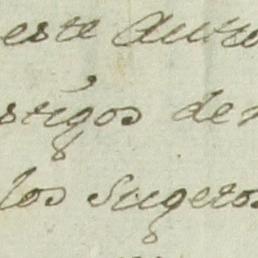 este Auto
stigos de
los Sugetos